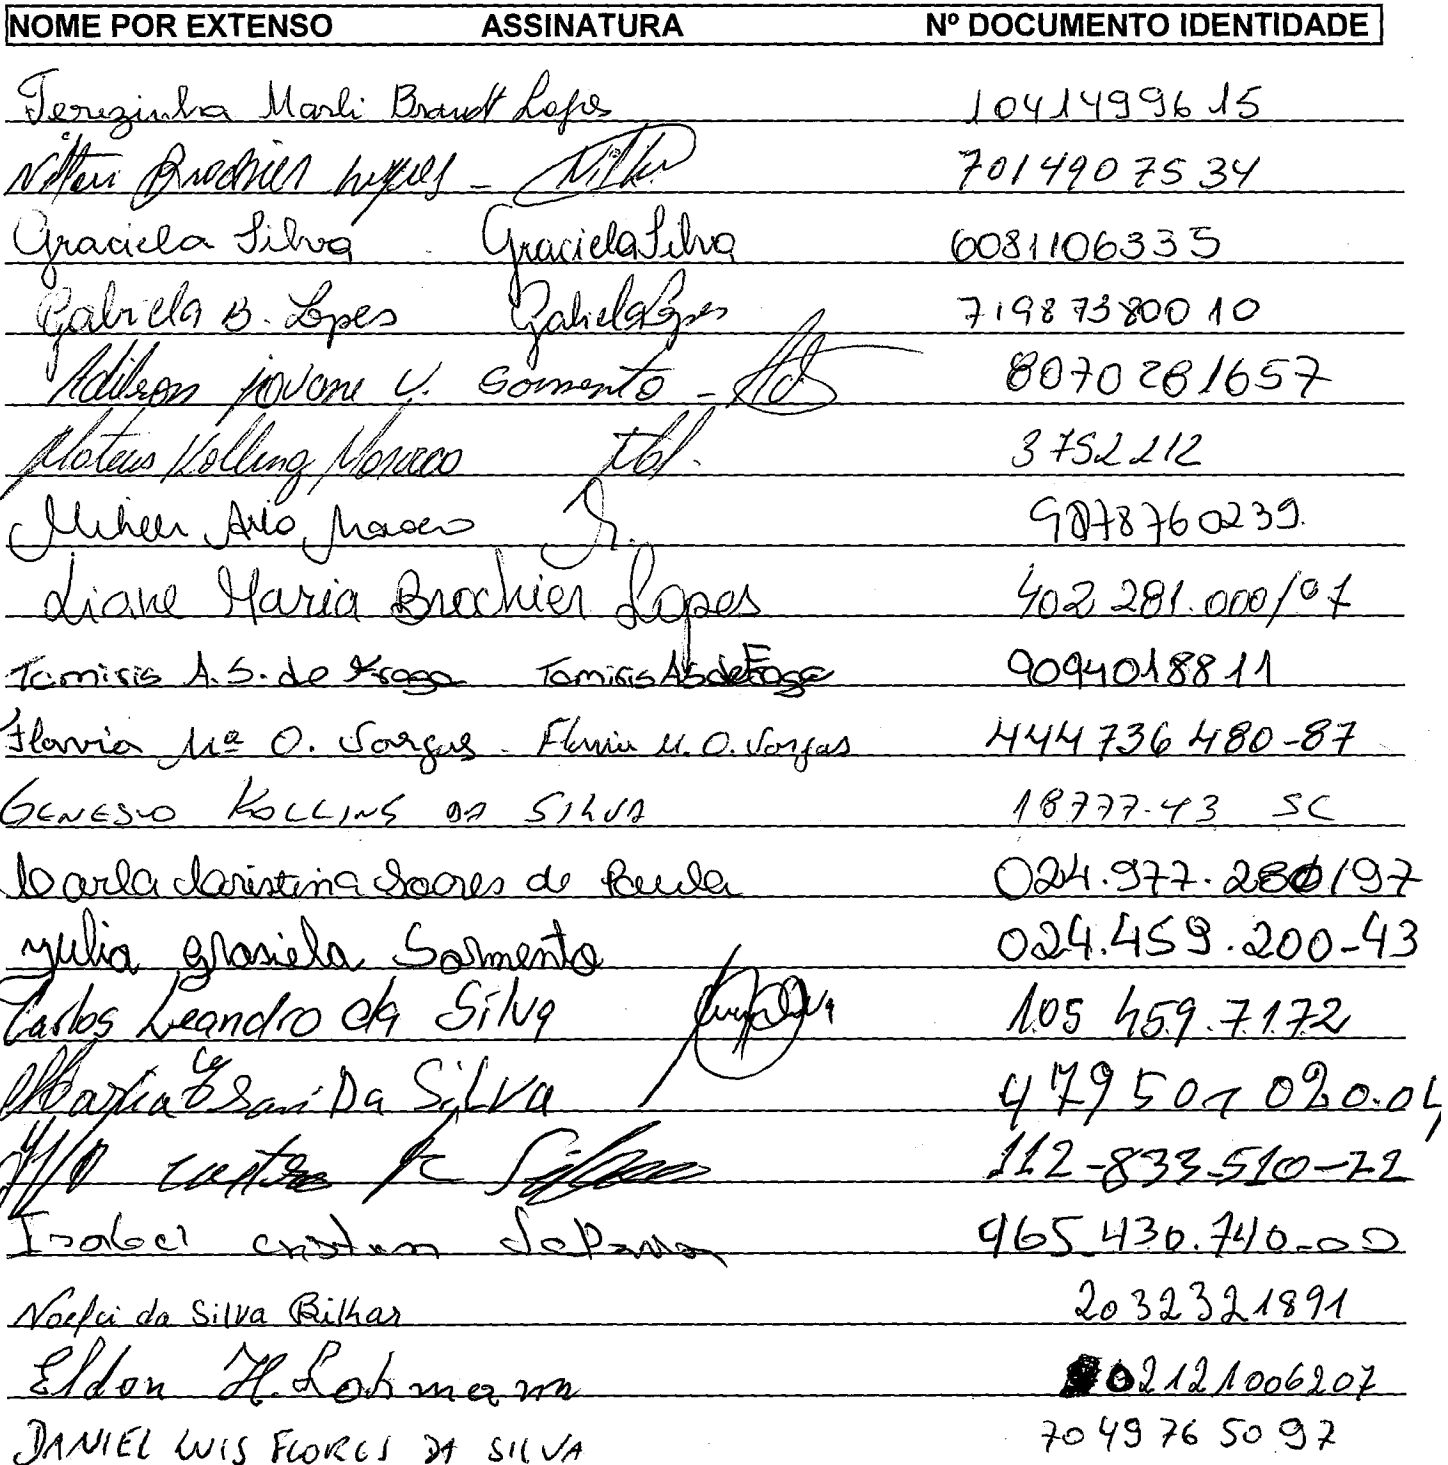 NOME POR EXTENSO ASSINATURA Nº DOCUMENTO IDENTIDADE
Terezinha Marli Brandt Lopes 1041499615
Brochier 7014907534
Graciela Silva Graciela Silva 6081106335
Gabriela B. Lopes Gabriela Lopes 71987380010
Adilson jovane V. Sarmento - 8070281657
Mateus Kolling 3752212
9078760239.
Liane Maria Brochier Lopes 402 281.000/07
Tamiris A.S. de Fraga Tamiris AS de Fraga 9094018811
Flavia Mª O. Vargas - Flavia M. O. Vargas 444736480-87
GENESIO KOLLING DA SILVA 18777-43 SC
Carla Caristina Soares de Paula 024.977. /97
yulia grasiela Sarmento 024.459.200-43
Carlos Leandro da Silva 105 459.7172
Da Silva
Silva 112-833-510-72
Isabel cristina 465.430.740-00
da Silva Bilhar 2032321891
Eldon H. Lohmann 02121006207
DANIEL LUIS FLORES DA SILVA 7049765097